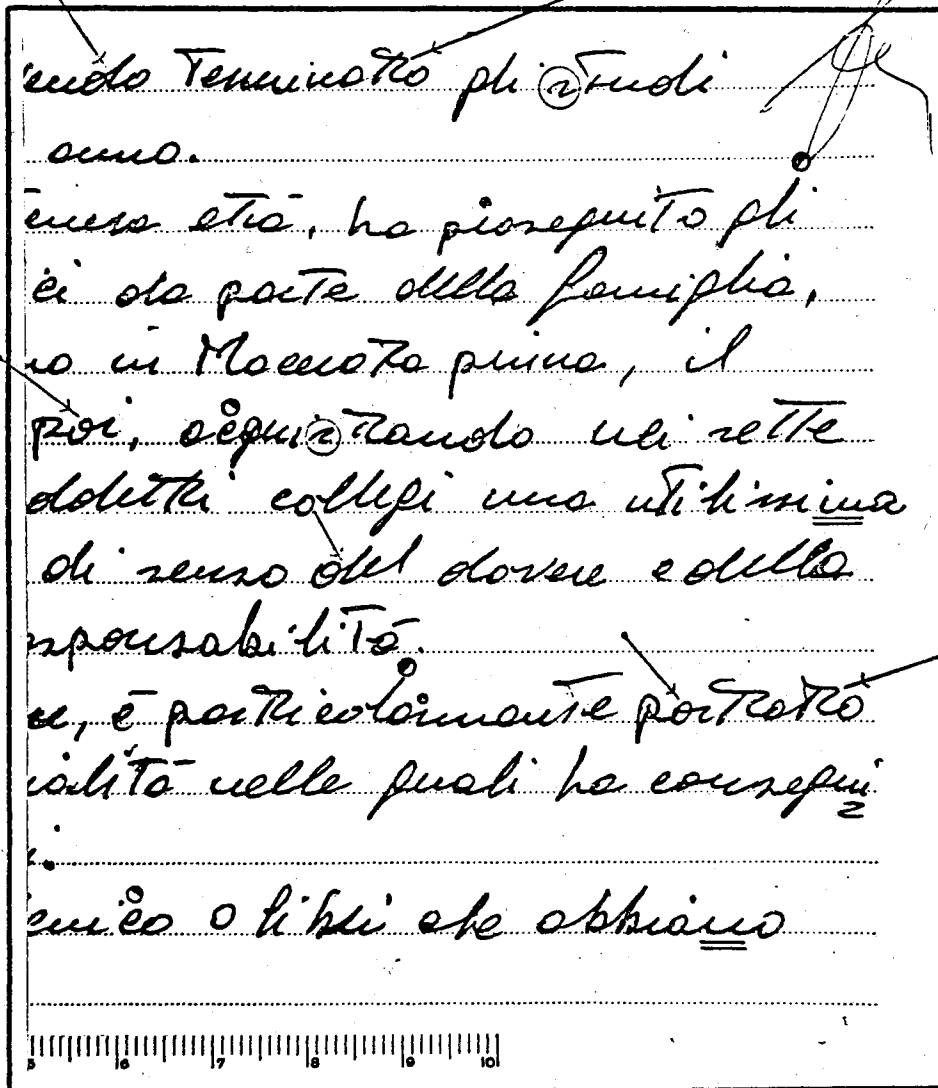 endo Terminato gli studi
anno.
tenera età, ha proseguito gli
ci da parte della famiglia,
no in Macerata prima, il
poi, acquistando nei sette
ddetti collegi una utilissima
di senso del dovere e della
esponsabilità.
e, è particolarmente portato
ialità nelle quali ha consegui
o libri che abbiano
5 6 7 8 9 10